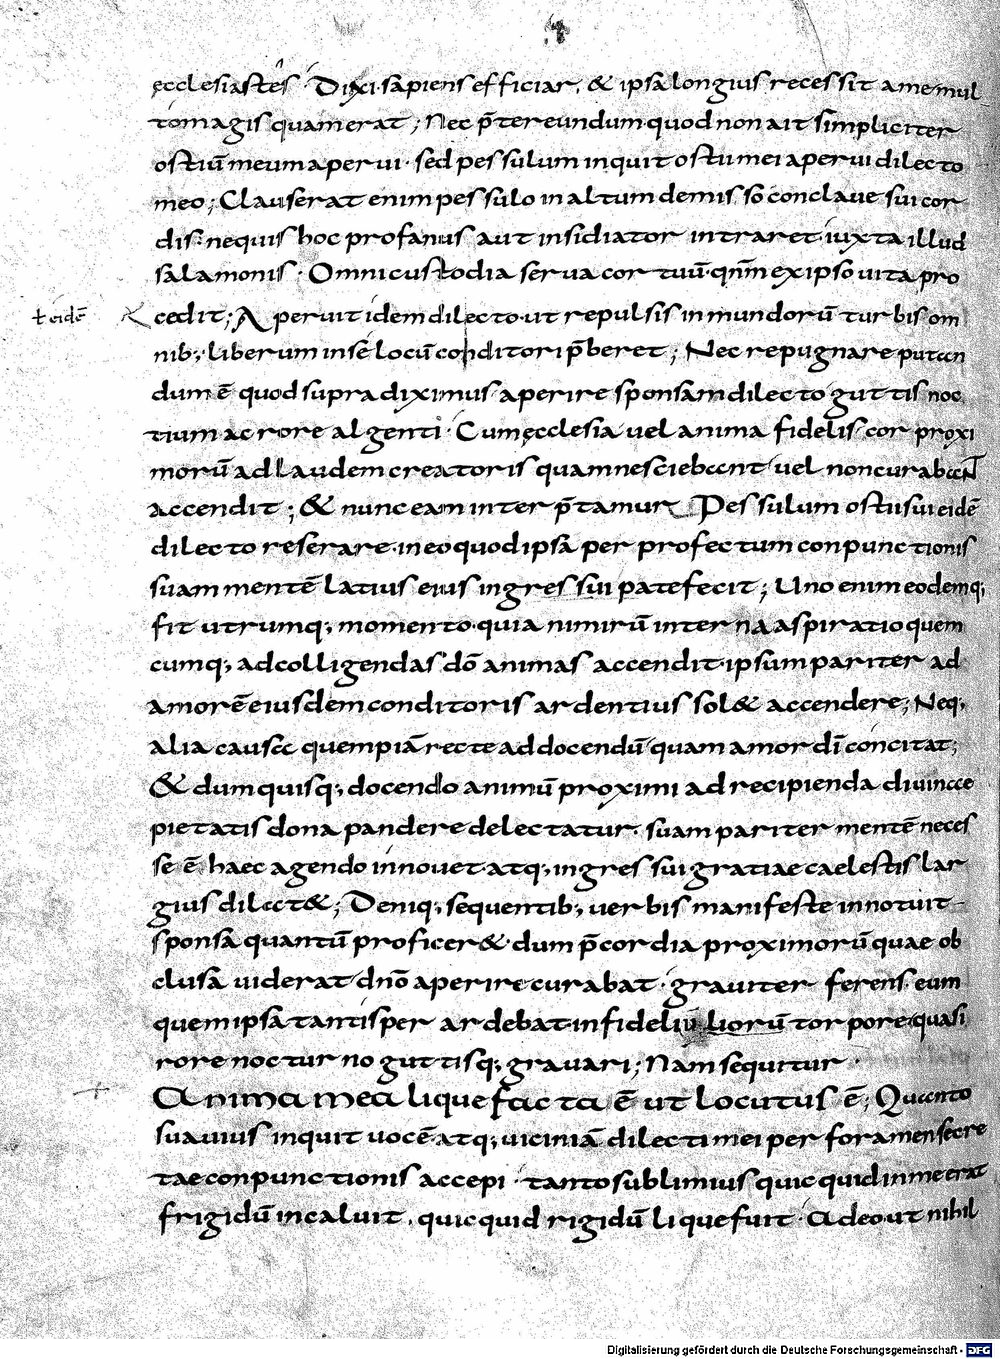 ęcclesiastes Dixi sapiens efficiar, & ipsa longius recessit ame mul
to magis quam erat; Nec p̄tereundum quod non ait simpliciter
ostiū meum aperui· sed pessulum inquit ostii mei aperui dilecto
meo; Clauserat enim pessulo in altum demisso conclaue sui cor
dis· nequis hoc profanus aut insidiator intraret· iuxta illud
salamonis· Omni custodia serua cor tuū· qn̄m ex ipso uita pro
ł eidē
cedit; Aperuit idem dilecto· ut repulsis inmundorū turbis om
nib; liberum in se locū conditori p̄beret; Nec repugnare putan
dum ē quod supra diximus· aperire sponsam dilecto guttis noc
tium ac rore algenti· Cum ęcclesia uel anima fidelis cor proxi
morū ad laudem creatoris quam nesciebant uel non curabant
accendit; & nunc eam interp̄tamur Pessulum ostii sui eidē
dilecto reserare· in eo quod ipsa per profectum conpunctionis
suam mentē latius eius ingressui patefecit; Uno enim eodemq;
fit utrumq; momento· quia nimirū interna aspiratio quem
cumq; ad colligendas dō animas accendit· ipsum pariter ad
amorē eiusdem conditoris ardentius sol& accendere; Neq;
alia causa quempiā recte ad docendū quam amor dī concitat;
& dum quisq; docendo animū proximi ad recipienda diuinae
pietatis dona pandere delectatur· suam pariter mentē neces
se ē haec agendo innouet· atq; ingressui gratiae caelestis lar
gius dilat&; Deniq; sequentib; uerbis manifeste innotuit
sponsa quantū proficer& dum p̄cordia proximorū quae ob
clusa uiderat dn̄o aperire curabat· grauiter ferens eum
quem ipsa tantisper ardebat infideliū horū torpore quasi
rore nocturno guttisq; grauari; Nam sequitur·
Anima mea liquefacta ē ut locutus ē; Quanto
suauius inquit uocē atq; uiciniā dilecti mei per foramen secre
tae conpunctionis accepi· tanto sublimius quicquid in me erat
frigidū incaluit, quicquid rigidū liquefuit· Adeo ut nihil
Digitalisierung gefördert durch die Deutsche Forschungsgemeinschaft - DFG